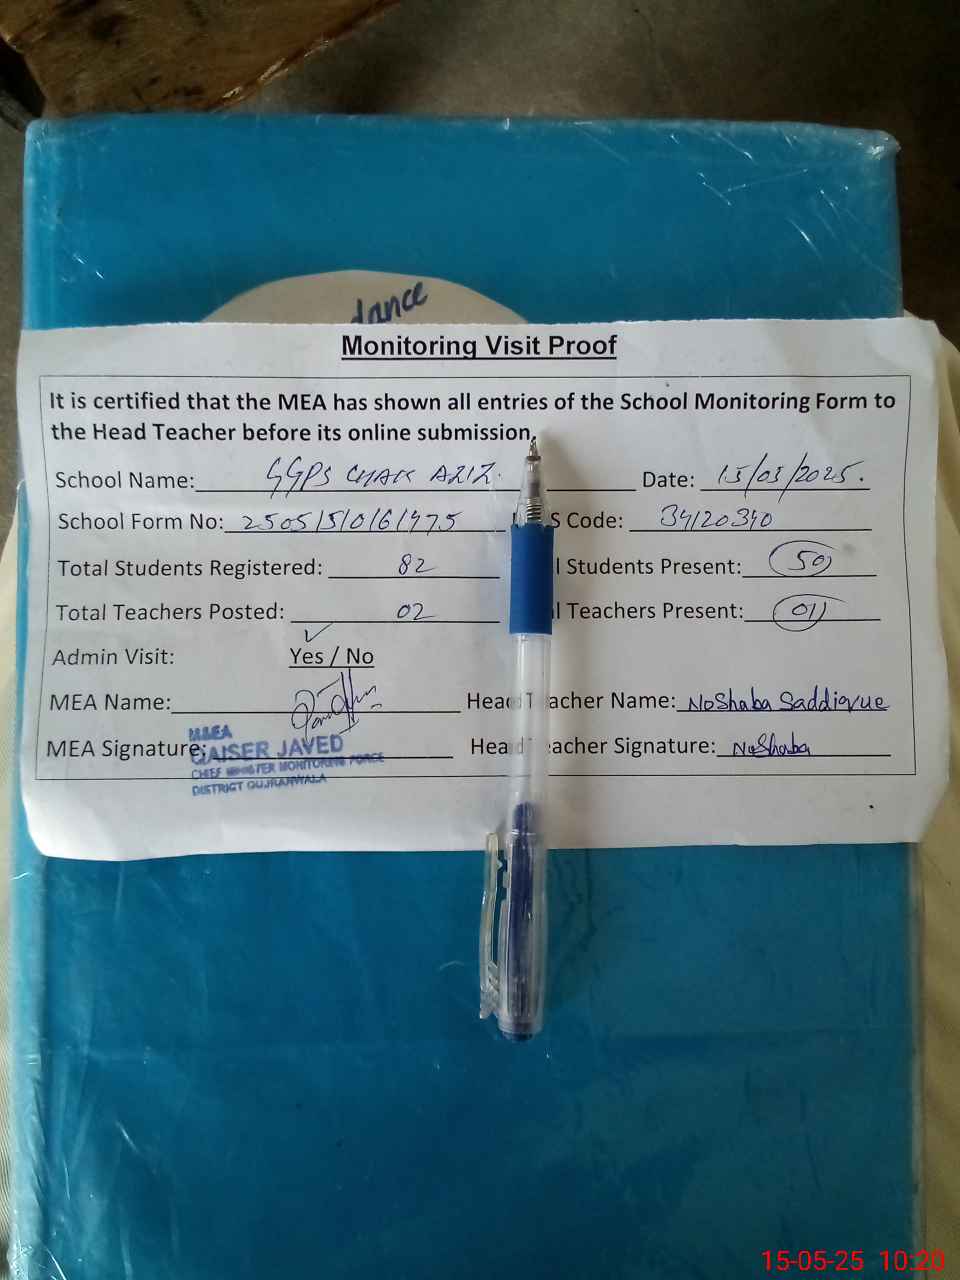 dance
Monitoring Visit Proof
It is certified that the MEA has shown all entries of the School Monitoring Form to
the Head Teacher before its online submission.
School Name: GGPS CHAK AZIZ. Date: 15/05/2025.
School Form No: 2505/5/0/6/475 S Code: 34120340
Total Students Registered: 82 l Students Present: 50
Total Teachers Posted: 02 l Teachers Present: 01
Admin Visit: Yes / No
MEA Name: Head Teacher Name: NoShaba Saddiqque
MEA Signature: Head Teacher Signature: NoShaba
MEA
QAISER JAVED
CHIEF MINISTER MONITORING FORCE
DISTRICT GUJRANWALA
15-05-25 10:20